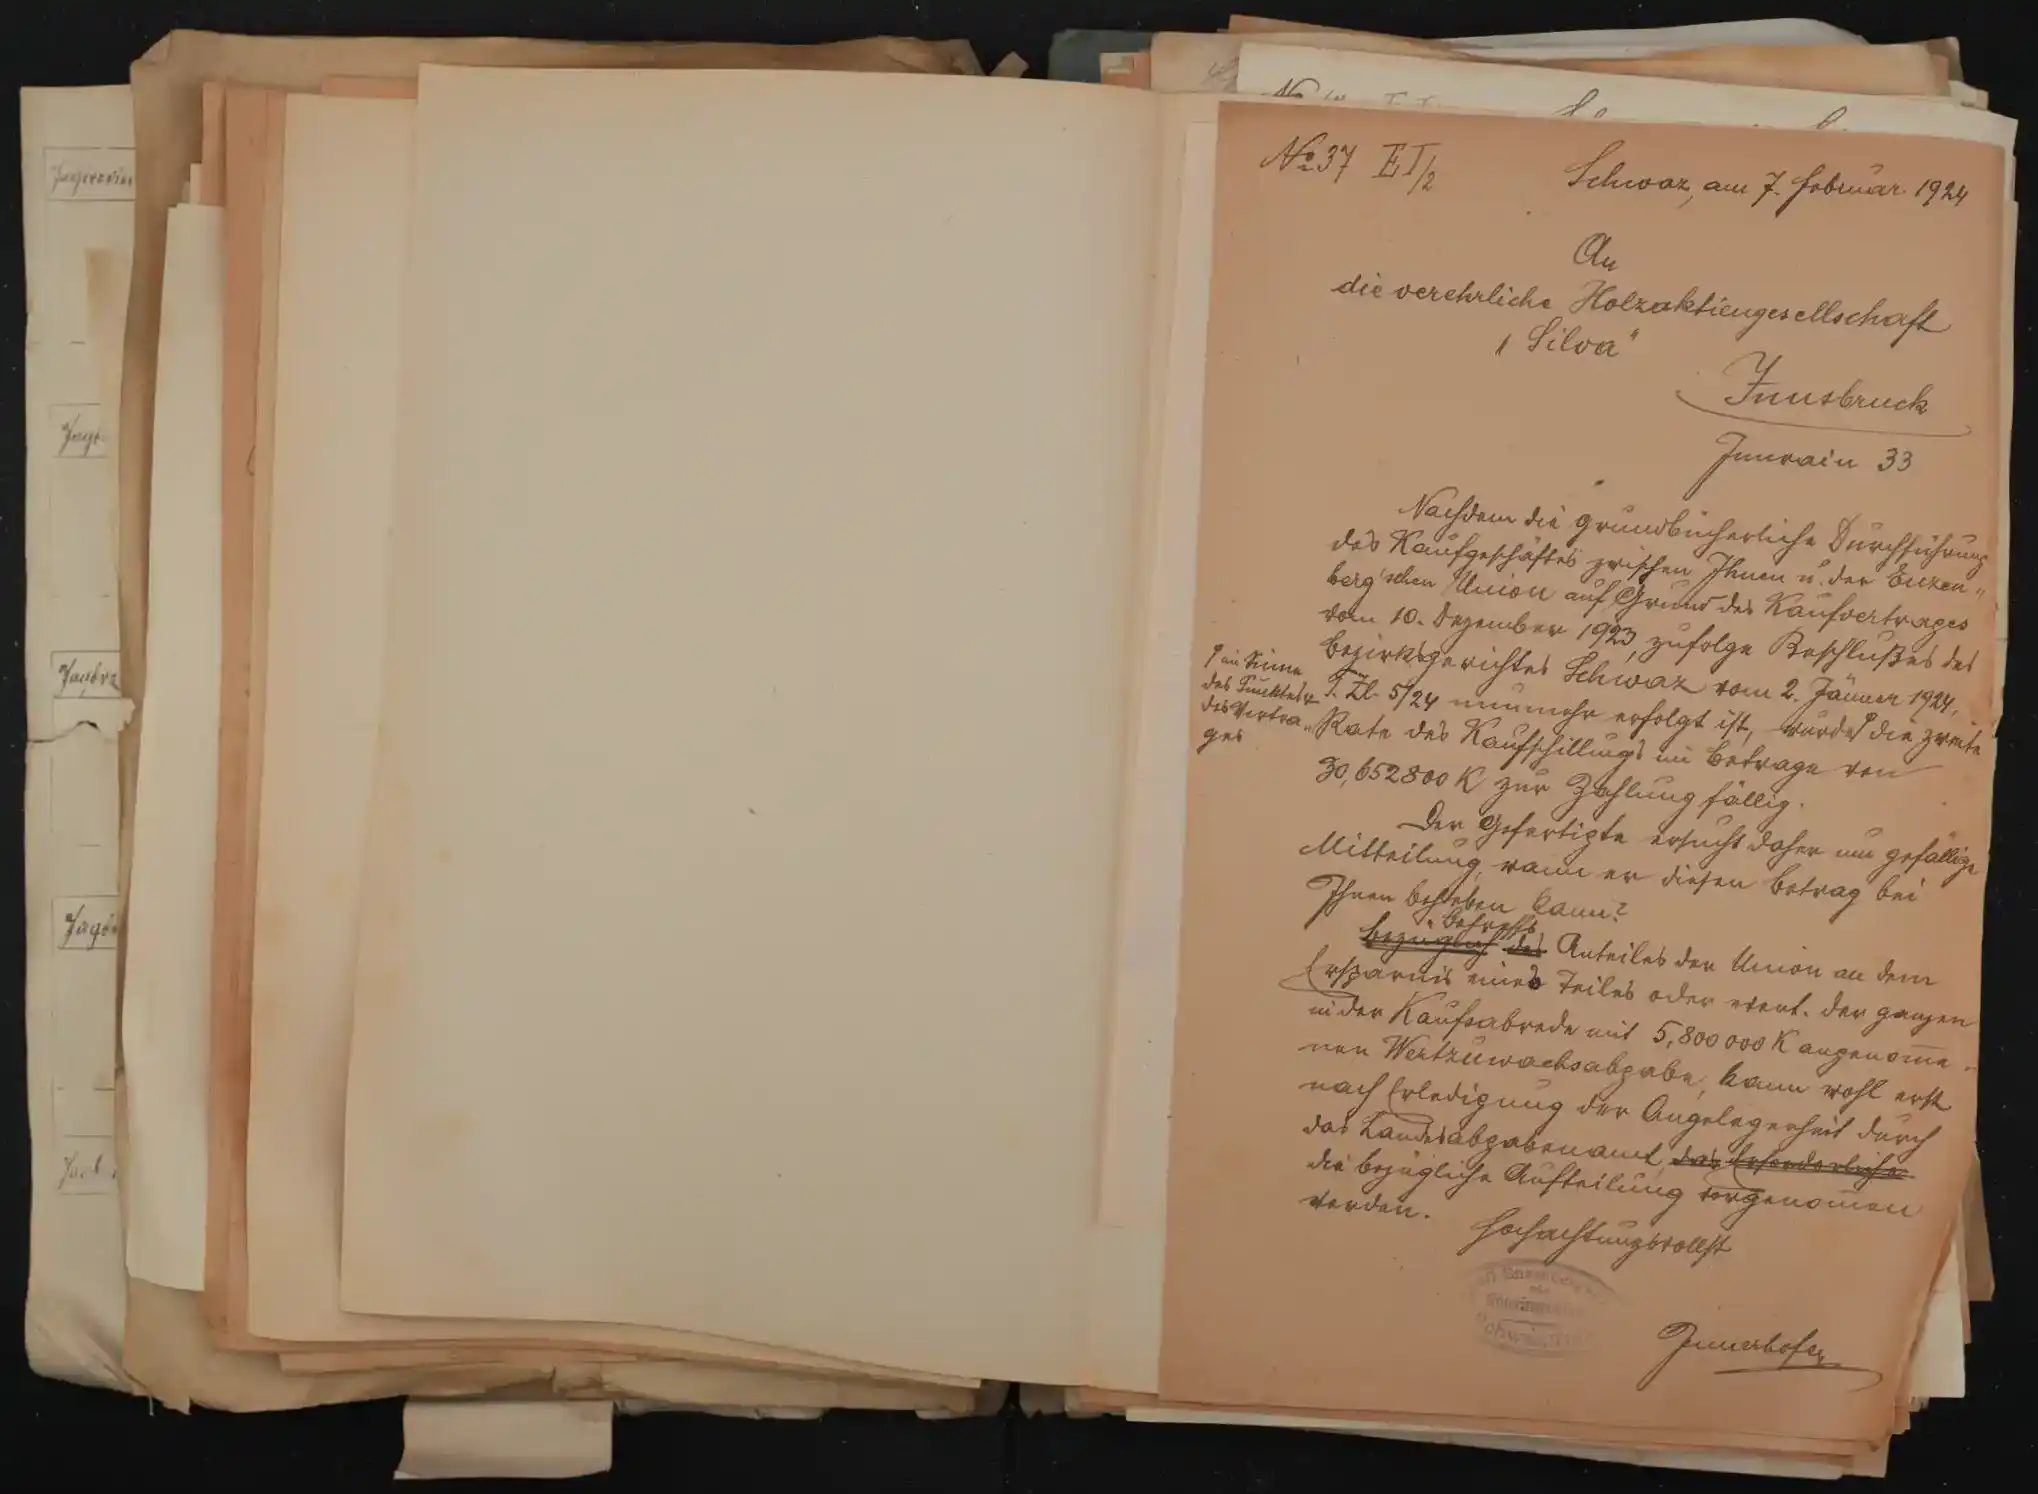 No 37 E I/2
Schwaz, am 7. Februar 1924
An
die verehrliche Holzaktiengesellschaft
"Silva"
Innsbruck
Innrain 33
Nachdem die grundbücherliche Durchführung
des Kaufgeschäftes zwischen Ihnen u. der Enzen-
berg'schen Union auf Grund des Kaufvertrages
vom 10. Dezember 1923, zufolge Beschlußes des
Bezirksgerichtes Schwaz vom 2. Jänner 1924,
T. Zl. 5/24 nunmehr erfolgt ist, wurde die zweite
im Sinne
des Punktes
des Vertra-
ges
Rate des Kaufschillings im Betrage von
30,652800 K zur Zahlung fällig.
Der Gefertigte ersucht daher um gefällige
Mitteilung, wann er diesen Betrag bei
Ihnen beheben kann?
Behreffs
Bezüglich des Anteiles der Union an dem
Ersparnis eines Teiles oder event. der ganzen
in der Kaufsabrede mit 5,800 000 K angenomme-
nen Wertzuwachsabgabe, kann wohl erst
nach Erledigung der Angelegenheit durch
das Landesabgabenamt, das Erforderliche
die bezügliche Aufteilung vorgenommen
werden.
Hochachtungsvollst
Innerhofer